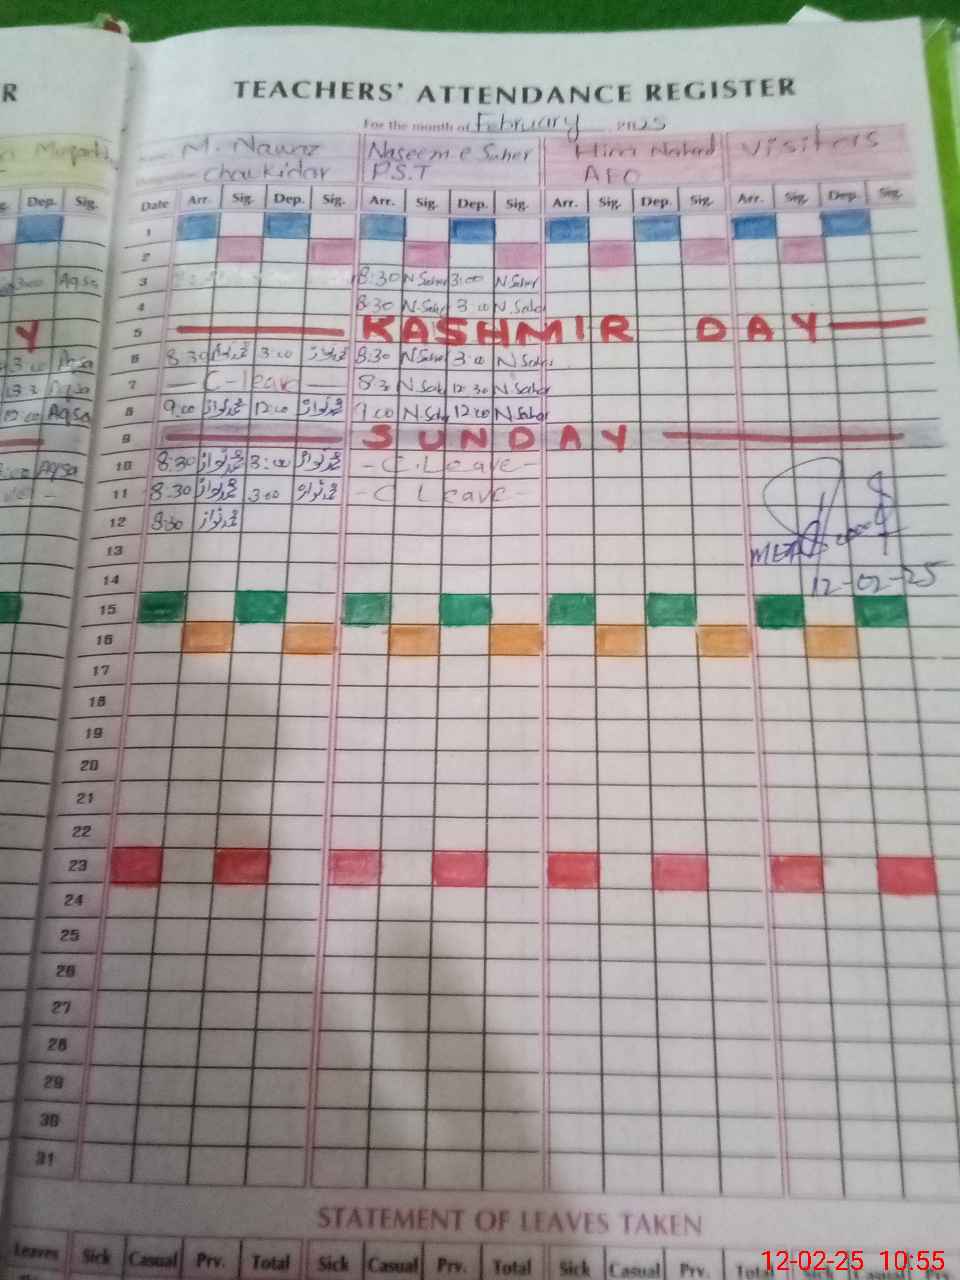 R
TEACHERS' ATTENDANCE REGISTER
For the month of February 2025
M. Nawaz Naseem e Saher Hira Visiters
Chaukidar P.S.T AEO
Dep. Sig. Date Arr. Sig. Dep. Sig. Arr. Sig. Dep. Sig. Arr. Sig. Dep. Sig. Arr. Sig. Dep. Sig.
1
2
3:00 Aqsa 3 8:30 N Saher 3:00 N Saher
4 8:30 N. Saher 3:00 N. Saher
Y 5 KASHMIR DAY
3:00 Aqsa 6 8:30 محمد نواز 3:00 محمد نواز 8:30 N Saher 3:00 N Saher
Aqsa 7 — C-leave — 8:30 N Saher 12:30 N Saher
12:00 Aqsa 8 9:00 محمد نواز 12:00 محمد نواز 9:00 N Saher 12:00 N Saher
9 SUNDAY
Aqsa 10 8:30 محمد نواز 3:00 محمد نواز - C. Leave -
11 8:30 محمد نواز 3:00 محمد نواز - C Leave -
12 8:30 محمد نواز
13 MEA
14 12-02-25
15
16
17
18
19
20
21
22
23
24
25
26
27
28
29
30
31
STATEMENT OF LEAVES TAKEN
Leaves Sick Casual Prv. Total Sick Casual Prv. Total Sick Casual Prv. Total Sick Casual Prv.
12-02-25 10:55